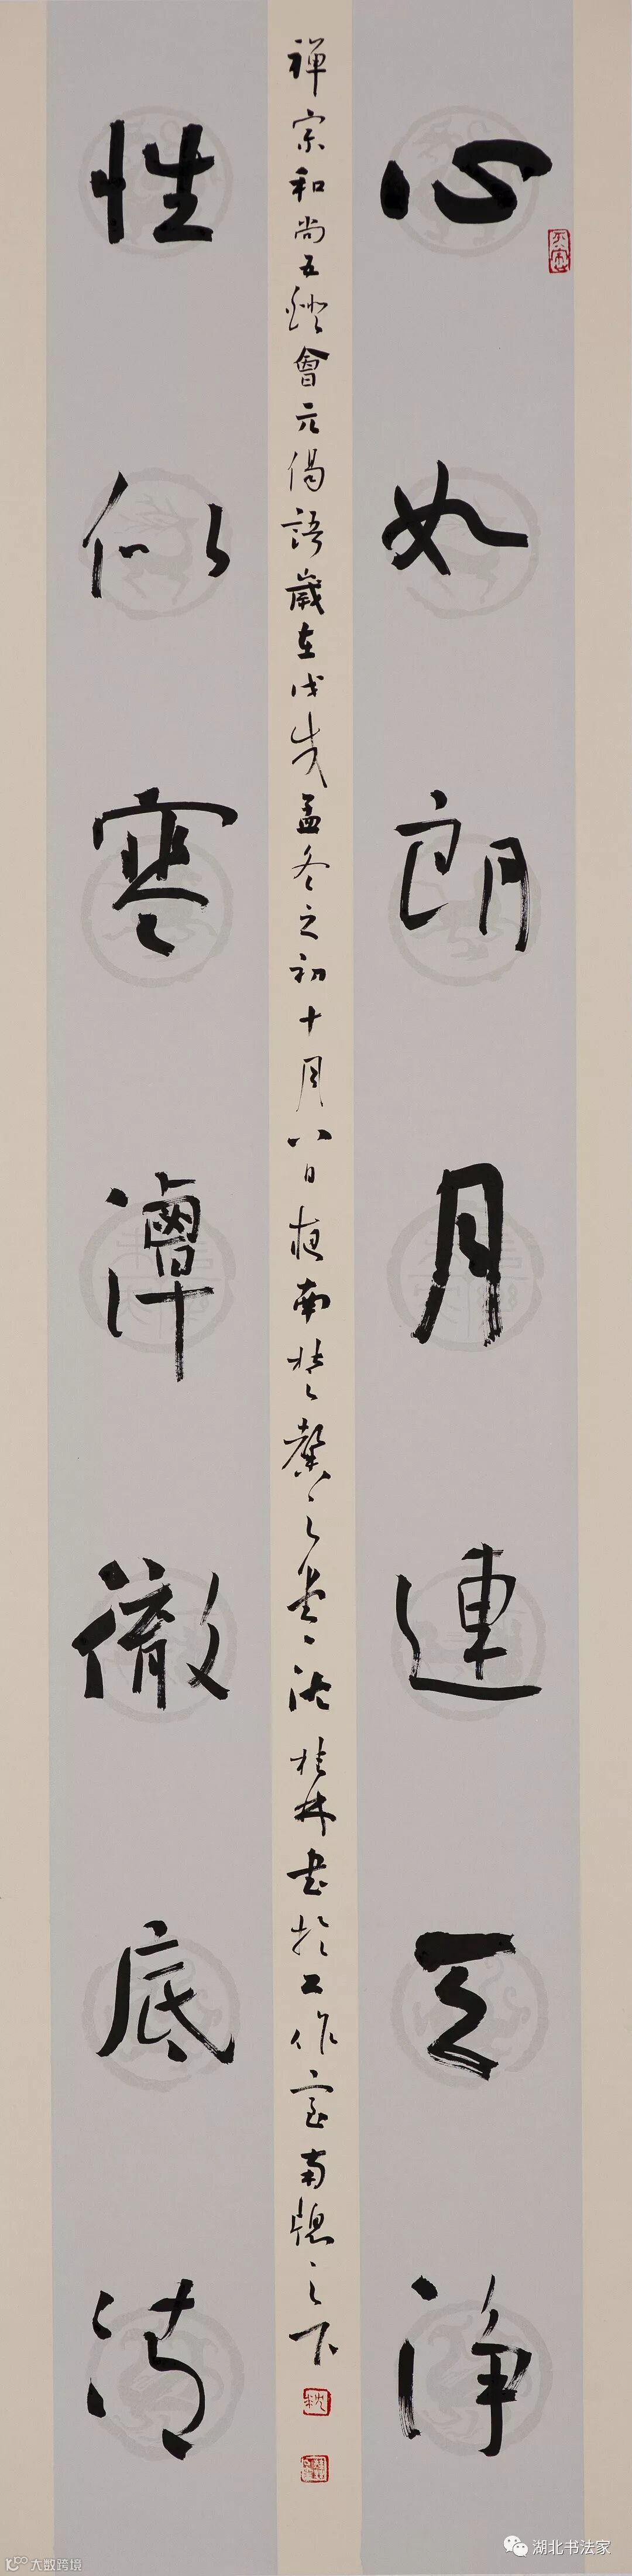 心如朗月連天淨
性似寒潭徹底清
禅宗和尚五燈會元偈語歲在戊戌孟冬之初十月八日夜南楚馨之堂沈桂林書於工作室南窗之下
湖北书法家
大数跨境